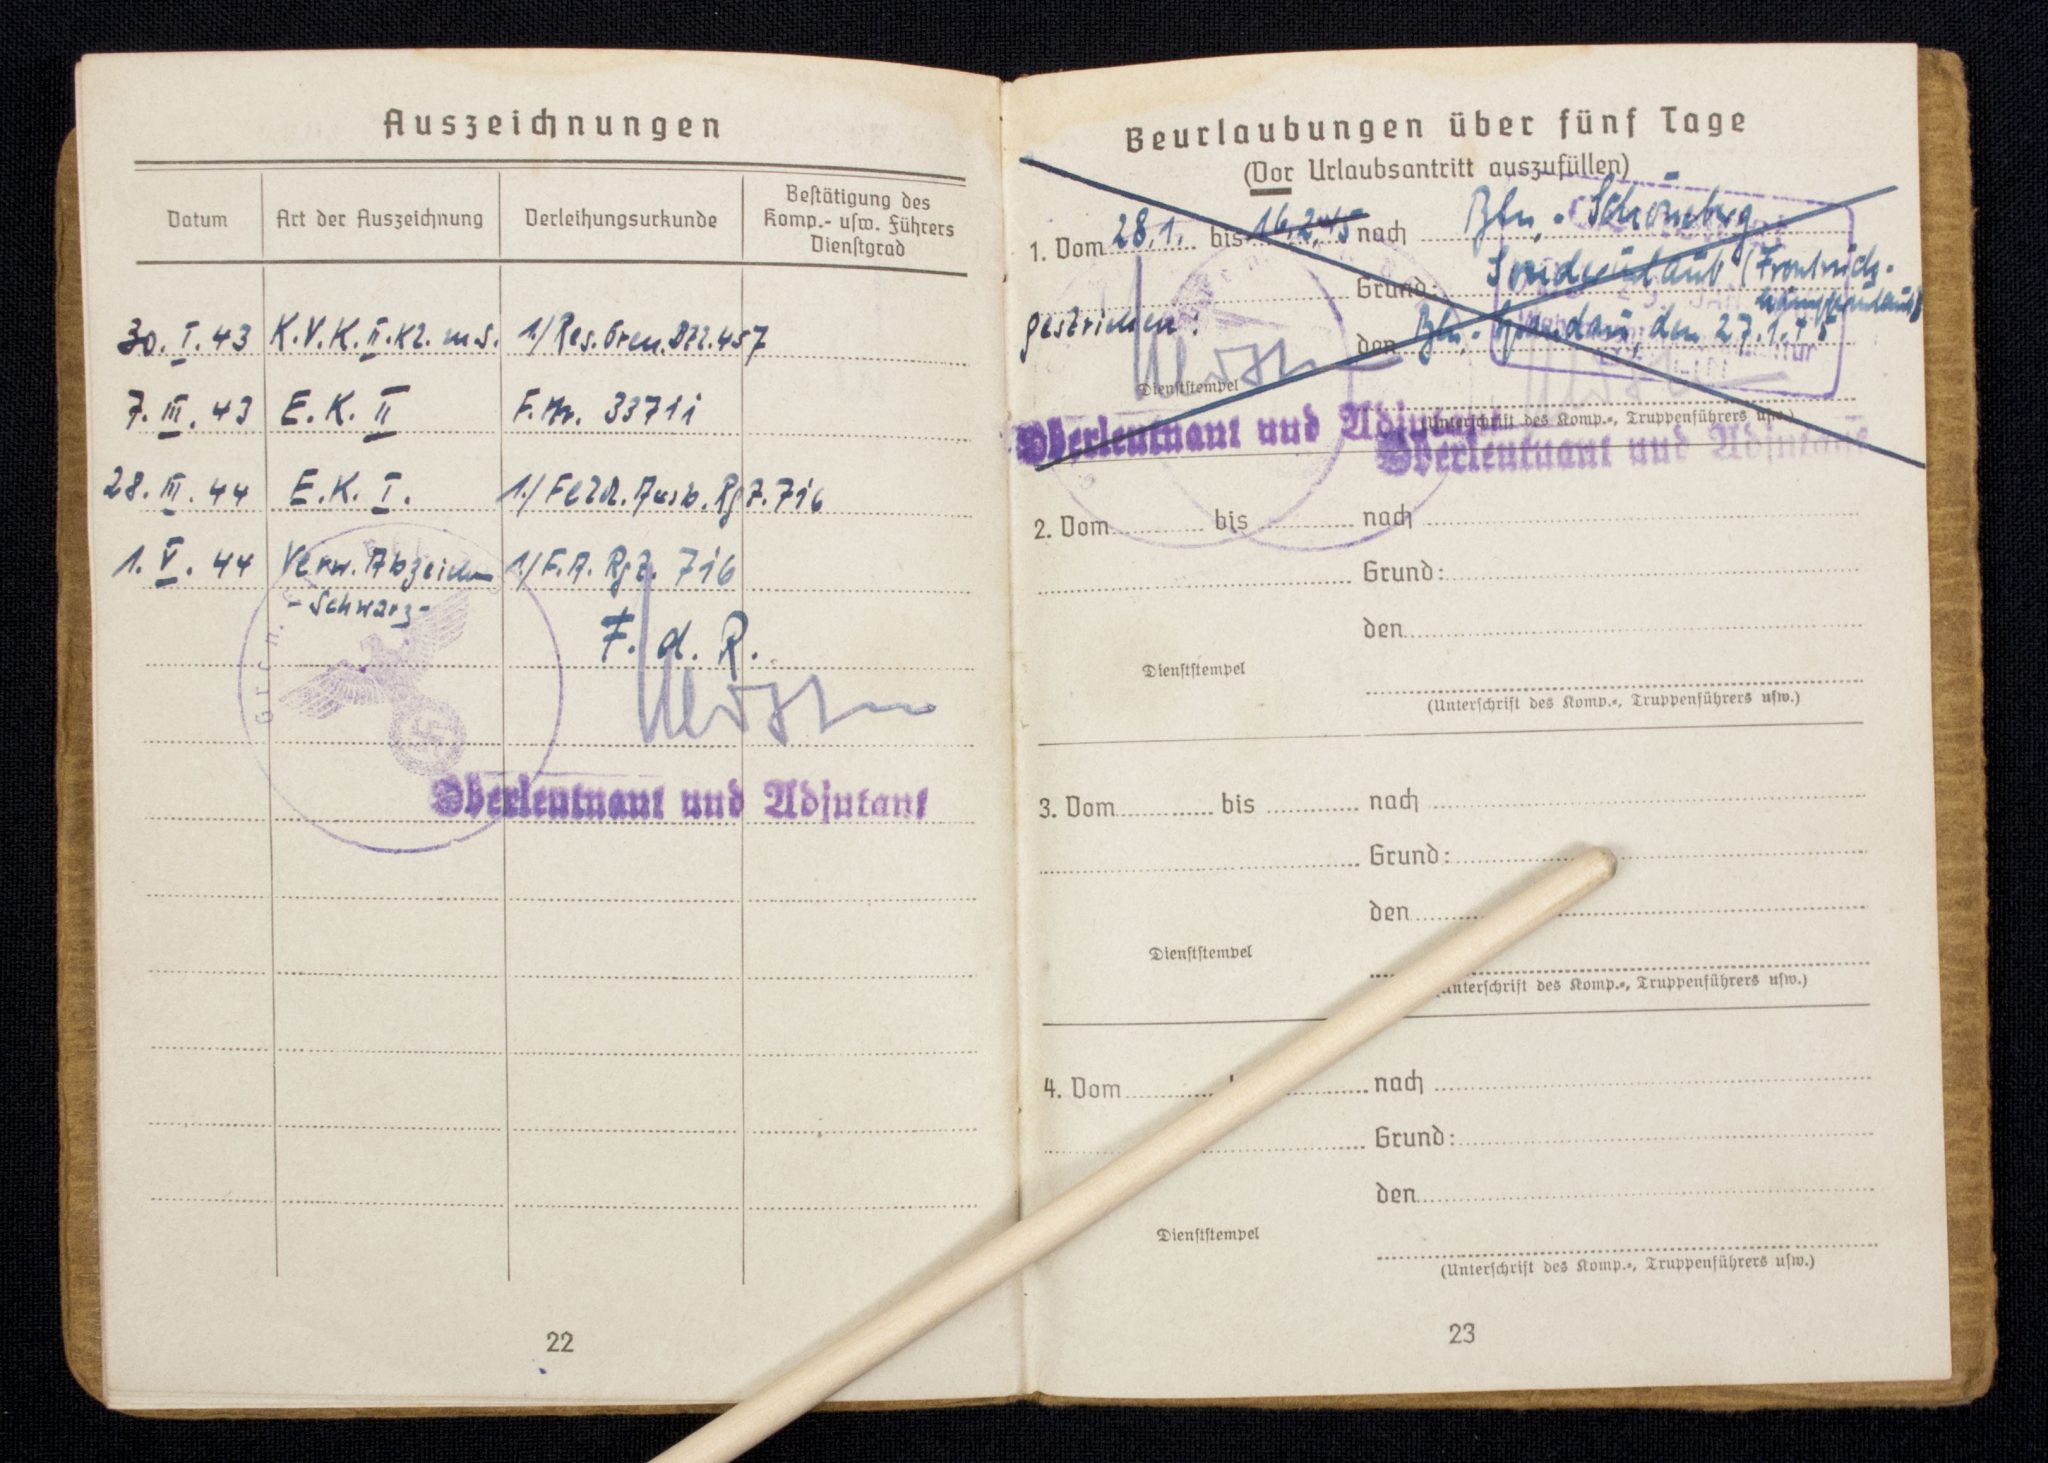 Auszeichnungen
Datum
Art der Auszeichnung
Verleihungsurkunde
Bestätigung des
Komp.- usw. Führers
Dienstgrad
30. I. 43 K.V.K. II. Kl. m. S. 1/Res. Gren. Btl. 457
7. III. 43 E.K. II F.Nr. 33711
28. III. 44 E.K. I. 1./Feld. Ausb. Rgt. 716
1. V. 44 Verw. Abzeichen 1./F.A. Rgt. 716
- Schwarz -
F. d. R.
Oberleutnant und Adjutant
22
Beurlaubungen über fünf Tage
(Vor Urlaubsantritt auszufüllen)
1. Vom 28.1. bis 16.2.45 nach Bln.-Schöneberg
Grund: Sonderurlaub (Frontrück-
gestrichen:
den Bln.-Spandau, den 27.1.45
Dienststempel
(Unterschrift des Komp.-, Truppenführers usw.)
Oberleutnant und Adjutant
Oberleutnant und Adjutant
2. Vom bis nach
Grund:
den
Dienststempel
(Unterschrift des Komp.-, Truppenführers usw.)
3. Vom bis nach
Grund:
den
Dienststempel
(Unterschrift des Komp.-, Truppenführers usw.)
4. Vom nach
Grund:
den
Dienststempel
(Unterschrift des Komp.-, Truppenführers usw.)
23